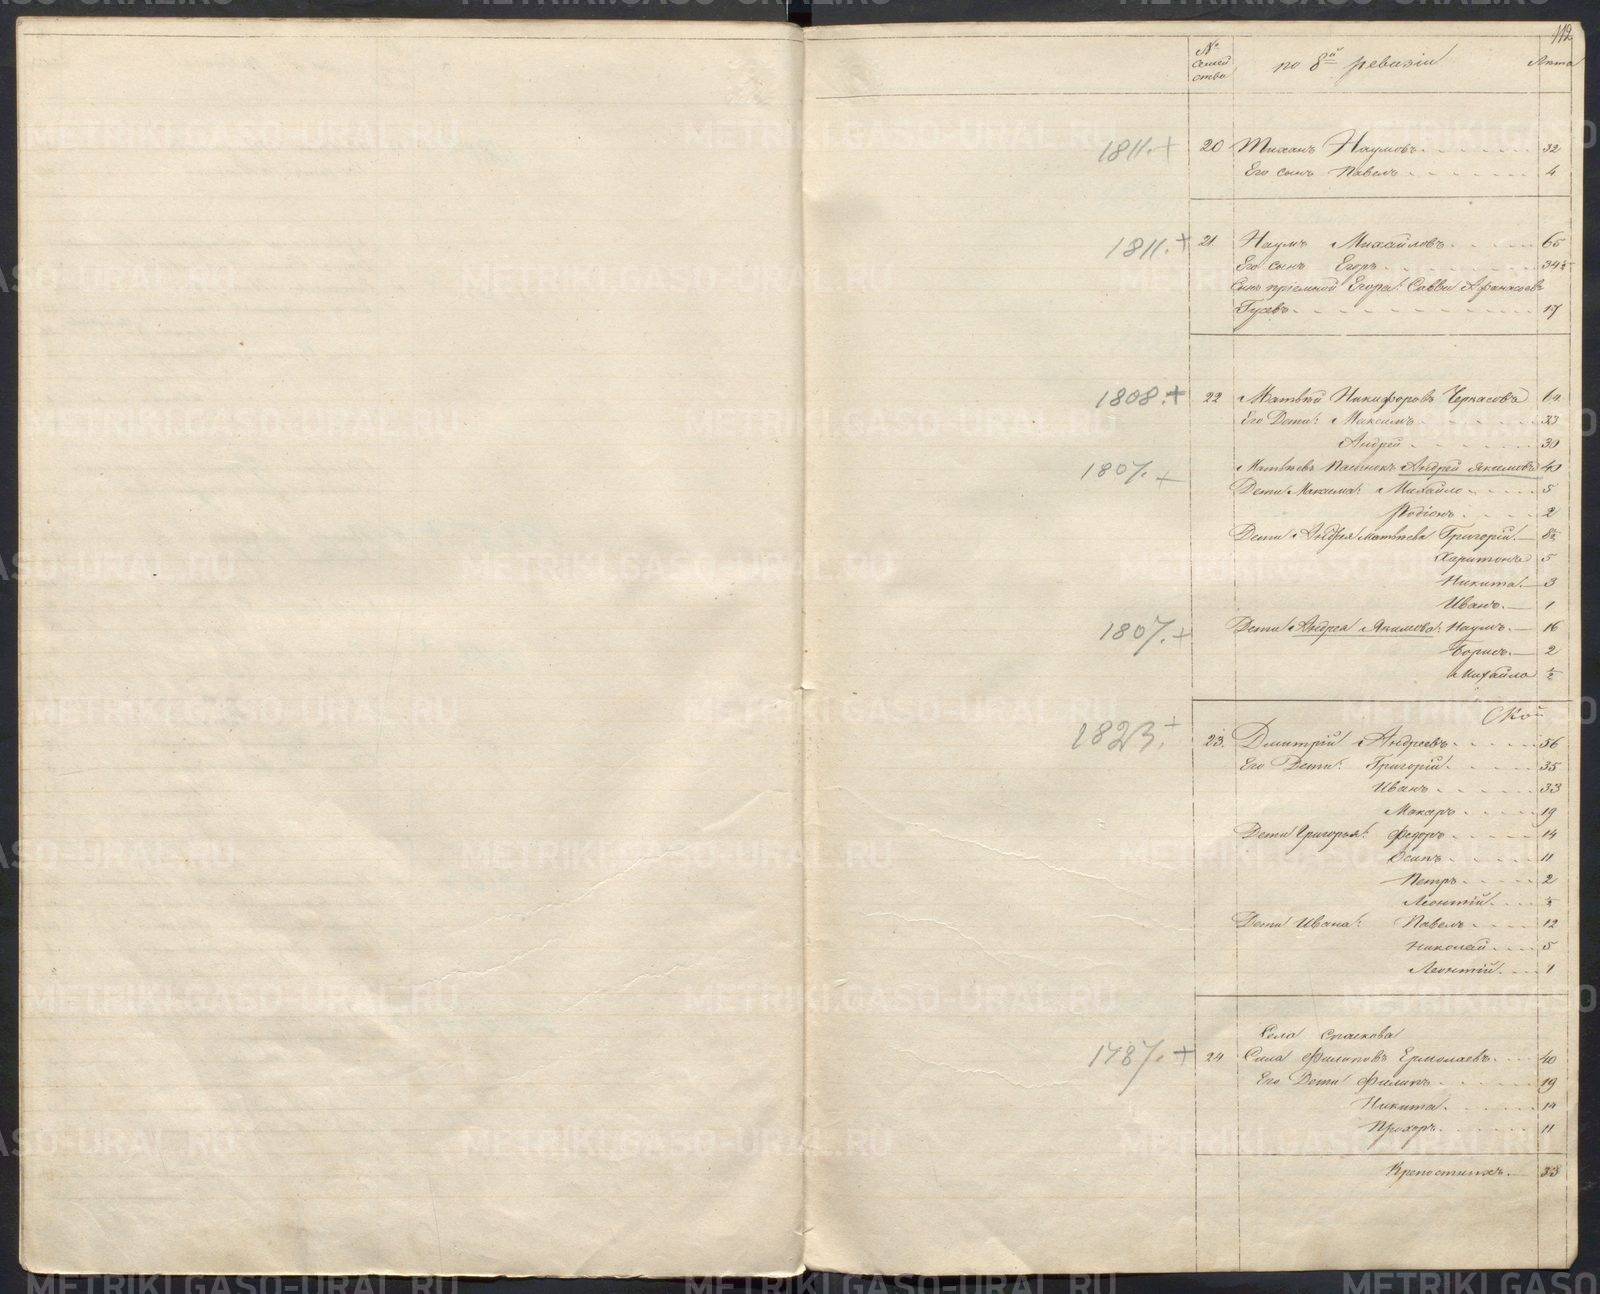 112
№ семей ства
по 8й ревизіи
Лѣта
1811.+ 20 Тиханъ Наумовъ 32
Его сынъ Павелъ 4
1811.+ 21. Наумъ Михайловъ 65
Его сынъ Егоръ 34½
Сынъ пріемной Егора: Савва Афанасьевъ
Гусевъ 17
1808.+ 22 Матвѣй Никифоровъ Черкасовъ
Его Дети: Максимъ 33
Андрей 30
1807.+ Матвѣевъ Пасынокъ Андрей Якимовъ 40
Дети Максима: Михайло 5
Родіонъ 2
Дети Андрея Матвѣева Григорій 8½
Харитонъ 5
Никита 3
Иванъ 1
1807.+ Дети Андрея Якимова: Наумъ 16
Борисъ 2
Михайло ½
1823.+ 23. Дмитрій Андреевъ 56
Его Дети: Григорій 35
Иванъ 33
Макаръ 19
Дети Григорья: Федоръ 14
Осипъ 11
Петръ 2
Леонтій ½
Дети Ивана: Павелъ 12
Николай 5
Леонтій 1
Села Спаскова
1787.+ 24 Сила Филиповъ Ермолаевъ 40
Его Дети Филипъ 19
Никита 14
Прохоръ 11
Крепостныхъ 33
METRIKI.GASO-URAL.RU